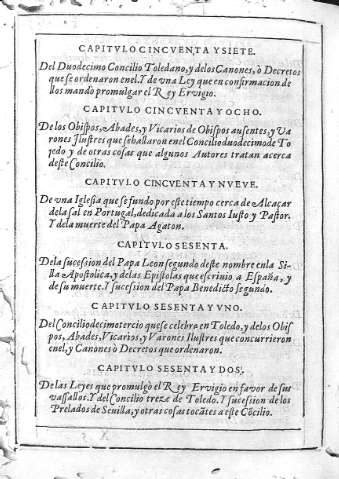 CAPITVLO CINCVENTA Y SIETE.
Del Duodecimo Concilio Toledano, y delos Canones, ò Decretos
que se ordenaron enel. Y de vna Ley que en confirmacion de
llos mandò promulgar el Rey Ervigio.
CAPITVLO CINCVENTA Y OCHO.
De los Obispos, Abades, y Vicarios de Obispos ausentes, y Va
rones Ilustres que se hallaron enel Concilio duodecimo de To
ledo y de otras cosas que algunos Autores tratan acerca
deste Concilio.
CAPITVLO CINCVENTA Y NVEVE.
De vna Iglesia que se fundo por este tiempo cerca de Alcaçar
dela sal en Portugal, dedicada a los Santos Iusto y Pastor.
Y dela muerte del Papa Agaton.
CAPITVLO SESENTA.
Dela sucession del Papa Leon segundo deste nombre enla Si-
lla Apostolica, y delas Epistolas que escriuio a España, y
de su muerte. Y sucession del Papa Benedicto segundo.
CAPITVLO SESENTA Y VNO.
Del Concilio decimotercio que se celebrò en Toledo, y delos Obis
pos, Abades, Vicarios, y Varones Ilustres que concurrieron
enel, y Canones ò Decretos que ordenaron.
CAPITVLO SESENTA Y DOS.
De las Leyes que promulgò el Rey Ervigio en favor de sus
vassallos. Y del Concilio treze de Toledo. Y sucession de los
Prelados de Seuilla, y otras cosas tocãtes a este Cõcilio.